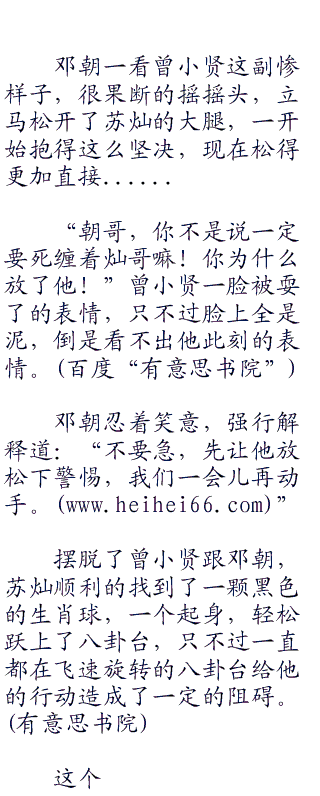 邓朝一看曾小贤这副惨
样子，很果断的摇摇头，立
马松开了苏灿的大腿，一开
始抱得这么坚决，现在松得
更加直接......
“朝哥，你不是说一定
要死缠着灿哥嘛！你为什么
放了他！”曾小贤一脸被耍
了的表情，只不过脸上全是
泥，倒是看不出他此刻的表
情。(百度“有意思书院”)
邓朝忍着笑意，强行解
释道：“不要急，先让他放
松下警惕，我们一会儿再动
手。(www.heihei66.com)”
摆脱了曾小贤跟邓朝，
苏灿顺利的找到了一颗黑色
的生肖球，一个起身，轻松
跃上了八卦台，只不过一直
都在飞速旋转的八卦台给他
的行动造成了一定的阻碍。
(有意思书院)
这个